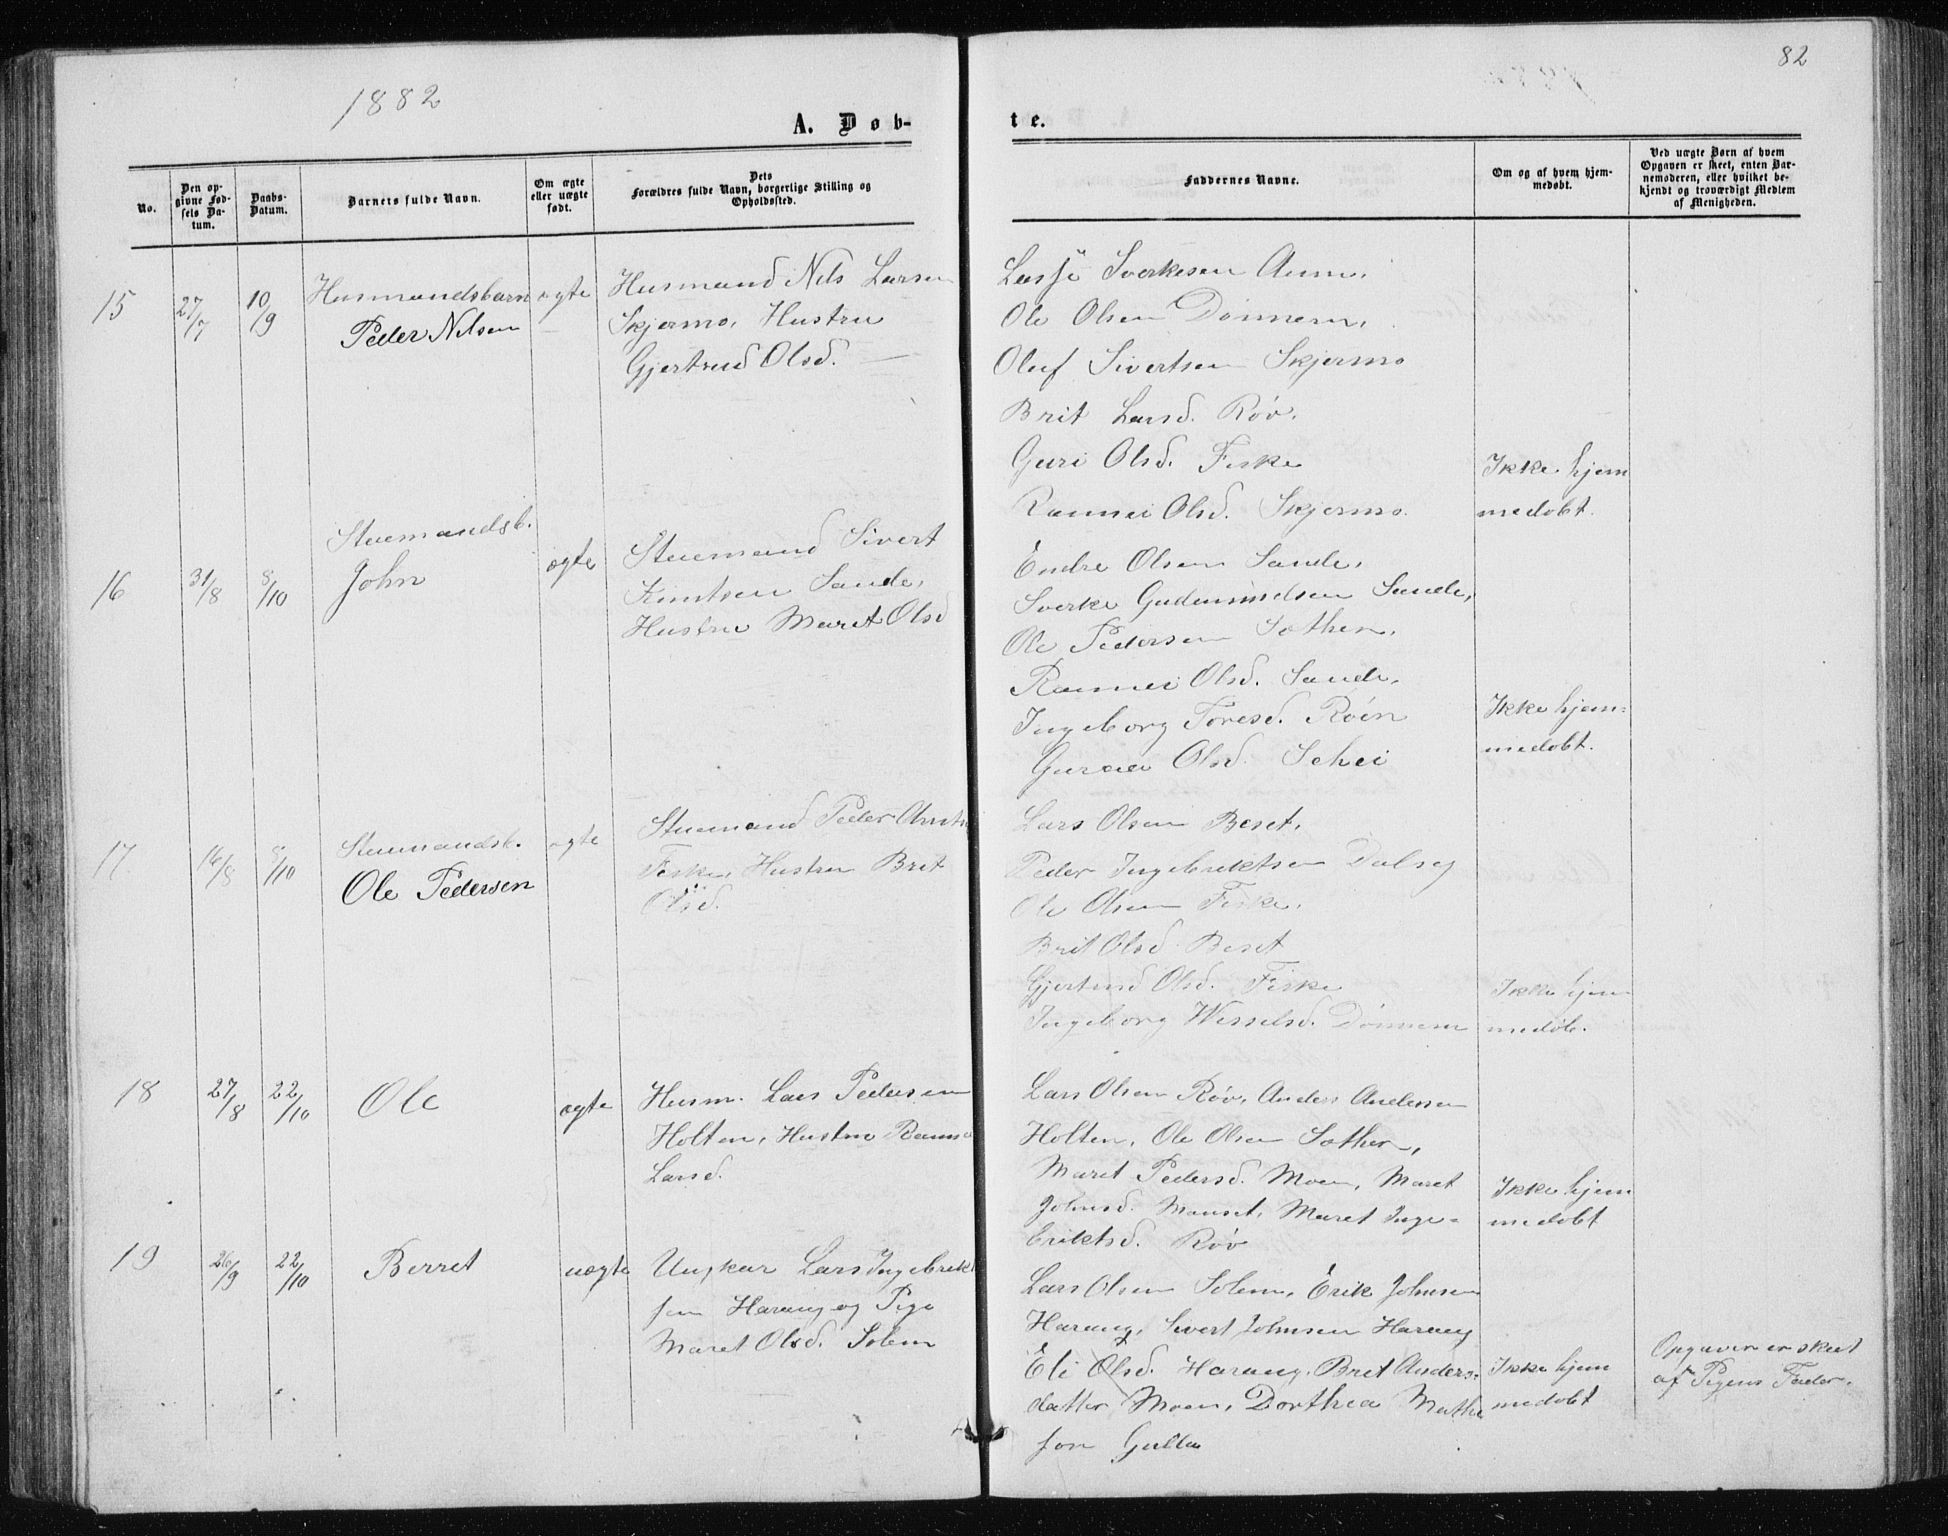 82
1882
A. Døb-
te.
No.
Den op-
givne Fød-
sels Da-
tum.
Daabs-
Datum.
Barnets fulde Navn.
Om ægte
eller uægte
født.
Dets
Forældres fulde Navn, borgerlige Stilling og
Opholdssted.
Faddernes Navne.
Om og af hvem hjem-
medøbt.
Ved uægte Børn af hvem
Opgaven er skeet, enten Bar-
nemoderen, eller hvilket be-
kjendt og troværdigt Medlem
af Menigheden.
15
27/7
10/9
Husmandsbarn
Peder Nilsen
ægte
Husmand Nils Larsen
Skjermo, Hustru
Gjertrud Olsd.
Sverkesen
Ole Olsen Dønnem,
Oluf Sivertsen Skjermo
Brit Larsd. Røv.
Guri Olsd. Fiske
Rannei Olsd. Skjermo.
Ikke hjem
medøbt.
16
31/8
8/10
Stuemandsb.
John
ægte
Stuemand Sivert
Knutsen Sande,
Hustru Maret Olsd
Endre Olsen Sande,
Sverke Gudmundsen Sande,
Ole Pedersen Sæther,
Rannei Olsd. Sande,
Ingeborg Toresd. Røen
Guraa Olsd. Schei
Ikke hjem-
medøbt.
17
16/8
8/10
Stuemandsb.
Ole Pedersen
ægte
Stuemand Peder
Fiske, Hustru Brit
Olsd.
Lars Olsen Beset,
Peder Ingebriktsen Dalseg
Ole Olsen Fiske,
Brit Olsd. Beset
Gjertrud Olsd. Fiske
Ingeborg Wesselsd. Dønnem
Ikke hjem
medøb.
18
27/8
22/10
Ole
ægte
Husm. Lars Pedersen
Holten, Hustru
Larsd.
Lars Olsen Røv, Anders Andersen
Holten, Ole Olsen Sæther,
Maret Pedersd. Moen, Maret
Johnsd. Mauset, Maret Inge-
briktsd. Røv
Ikke hjem
medøbt
19
26/9
22/10
Berret
uægte
Ungkar Lars Ingebrikt
sen Harang og Pige
Maret Olsd. Solem
Lars Olsen Solem, Erik Johnsen
Harang, Sivert Johnsen Harang
Eli Olsd. Harang, Brit Anders-
datter Moen, Dorthea Mathe
son Gulla
Ikke hjem
medøbt
Opgaven er skeet
af Pigens Fader.